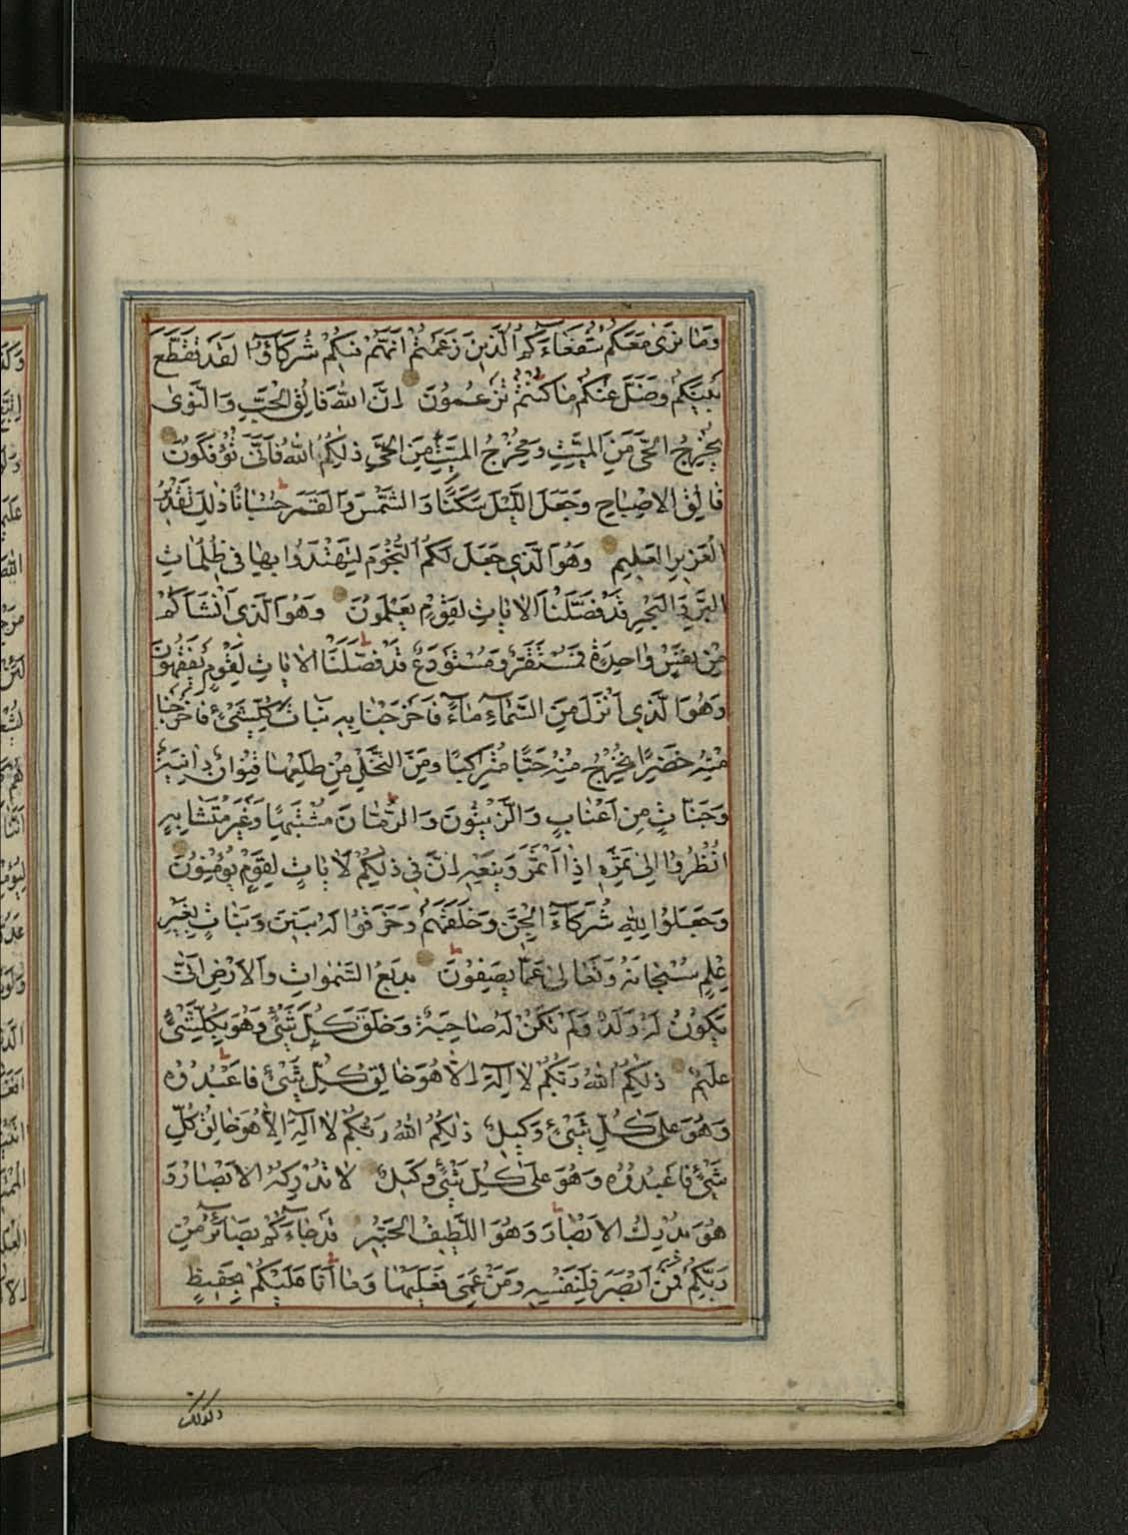 وَمَا نَرَىٰ مَعَكُمْ شُفَعَاءَكُمُ الَّذِينَ زَعَمْتُمْ أَنَّهُمْ فِيكُمْ شُرَكَاؤُا لَقَدْ تَقَطَّعَ
بَيْنَكُمْ وَضَلَّ عَنْكُمْ مَا كُنْتُمْ تَزْعُمُونَ اِنَّ اللّٰهَ فَالِقُ الْحَبِّ وَالنَّوٰى
يُخْرِجُ الْحَيَّ مِنَ الْمَيِّتِ وَمُخْرِجُ الْمَيِّتِ مِنَ الْحَيِّ ذٰلِكُمُ اللّٰهُ فَاَنّٰى تُؤْفَكُونَ
فَالِقُ الْاِصْبَاحِ وَجَعَلَ اللَّيْلَ سَكَنًا وَالشَّمْسَ وَالْقَمَرَ حُسْبَانًا ذٰلِكَ تَقْدِيرُ
الْعَزِيزِ الْعَلِيمِ وَهُوَ الَّذِي جَعَلَ لَكُمُ النُّجُومَ لِتَهْتَدُوا بِهَا فِي ظُلُمَاتِ
الْبَرِّ وَالْبَحْرِ قَدْ فَصَّلْنَا الْاٰيَاتِ لِقَوْمٍ يَعْلَمُونَ وَهُوَ الَّذِي اَنْشَاَكُمْ
مِنْ نَفْسٍ وَاحِدَةٍ فَمُسْتَقَرٌّ وَمُسْتَوْدَعٌ قَدْ فَصَّلْنَا الْاٰيَاتِ لِقَوْمٍ يَفْقَهُونَ
وَهُوَ الَّذِي اَنْزَلَ مِنَ السَّمَاءِ مَاءً فَاَخْرَجْنَا بِهِ نَبَاتَ كُلِّ شَيْءٍ فَاَخْرَجْنَا
مِنْهُ خَضِرًا نُخْرِجُ مِنْهُ حَبًّا مُتَرَاكِبًا وَمِنَ النَّخْلِ مِنْ طَلْعِهَا قِنْوَانٌ دَانِيَةٌ
وَجَنَّاتٍ مِنْ اَعْنَابٍ وَالزَّيْتُونَ وَالرُّمَّانَ مُشْتَبِهًا وَغَيْرَ مُتَشَابِهٍ
اُنْظُرُوا اِلىٰ ثَمَرِهِ اِذَا اَثْمَرَ وَيَنْعِهِ اِنَّ فِي ذٰلِكُمْ لَاٰيَاتٍ لِقَوْمٍ يُؤْمِنُونَ
وَجَعَلُوا لِلّٰهِ شُرَكَاءَ الْجِنَّ وَخَلَقَهُمْ وَخَرَقُوا لَهُ بَنِينَ وَبَنَاتٍ بِغَيْرِ
عِلْمٍ سُبْحَانَهُ وَتَعَالىٰ عَمَّا يَصِفُونَ بَدِيعُ السَّمٰوَاتِ وَالْاَرْضِ اَنّٰى
يَكُونُ لَهُ وَلَدٌ وَلَمْ تَكُنْ لَهُ صَاحِبَةٌ وَخَلَقَ كُلَّ شَيْءٍ وَهُوَ بِكُلِّ شَيْءٍ
عَلِيمٌ ذٰلِكُمُ اللّٰهُ رَبُّكُمْ لَا اِلٰهَ اِلَّا هُوَ خَالِقُ كُلِّ شَيْءٍ فَاعْبُدُوهُ
وَهُوَ عَلىٰ كُلِّ شَيْءٍ وَكِيلٌ ذٰلِكُمُ اللّٰهُ رَبُّكُمْ لَا اِلٰهَ اِلَّا هُوَ خَالِقُ كُلِّ
شَيْءٍ فَاعْبُدُوهُ وَهُوَ عَلىٰ كُلِّ شَيْءٍ وَكِيلٌ لَا تُدْرِكُهُ الْاَبْصَارُ وَ
هُوَ يُدْرِكُ الْاَبْصَارَ وَهُوَ اللَّطِيفُ الْخَبِيرُ قَدْ جَاءَكُمْ بَصَائِرُ مِنْ
رَبِّكُمْ فَمَنْ اَبْصَرَ فَلِنَفْسِهِ وَمَنْ عَمِيَ فَعَلَيْهَا وَمَا اَنَا عَلَيْكُمْ بِحَفِيظٍ
وكذلك